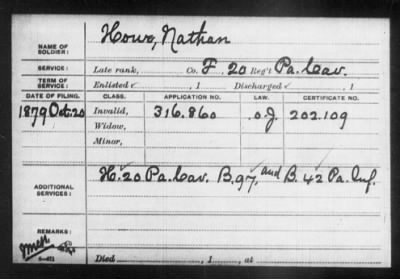 NAME OF SOLDIER: Howe, Nathan
SERVICE: Late rank, Co. F. 20 Reg't Pa. Cav.
TERM OF SERVICE: Enlisted , 1 Discharged , 1
DATE OF FILING. CLASS. APPLICATION NO. LAW. CERTIFICATE NO.
1879 Oct. 20 Invalid, 316.860 202.109
Widow,
Minor,
ADDITIONAL SERVICES: H. 20 Pa. Cav. B. 97, and B. 42 Pa. Inf.
REMARKS:
Died , 1 , at